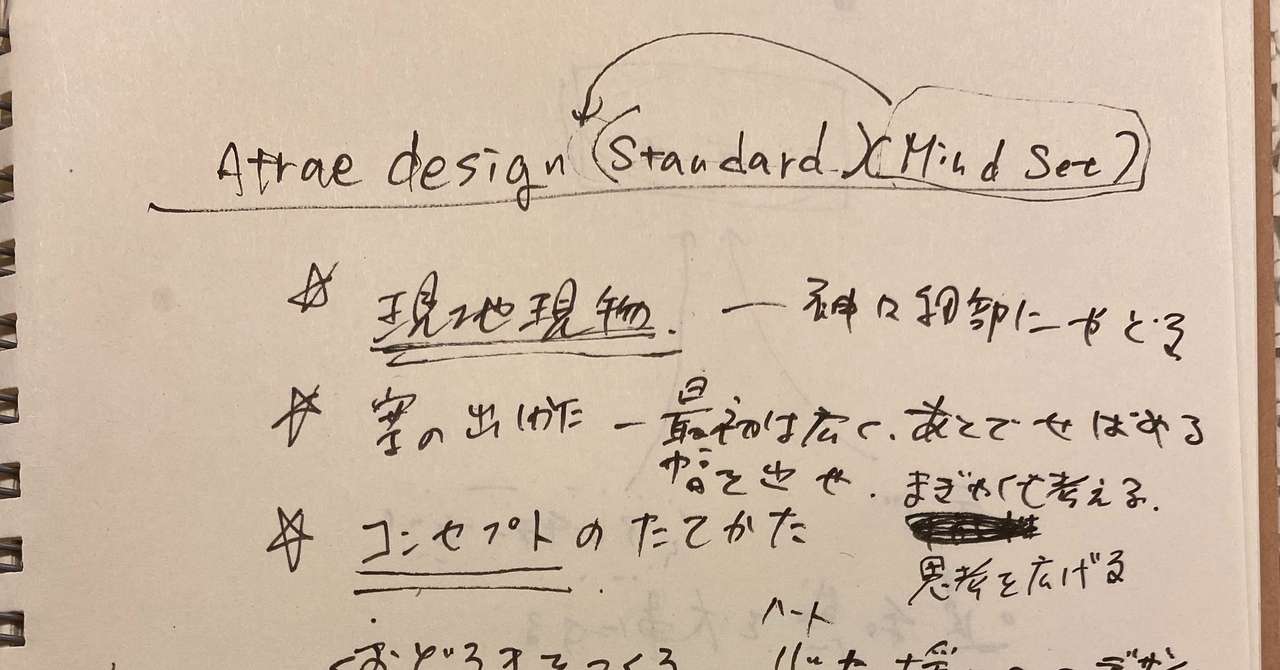 Atrae design (Standard)(Mind Set)
☆ 現地現物. ― 神は細部にやどる
☆ 案の出しかた ― 最初は広く、あとでせばめる
幅を出せ. まぎゃくで考える.
思考を広げる
☆ コンセプトのたてかた
ハート
おどろきをつくる